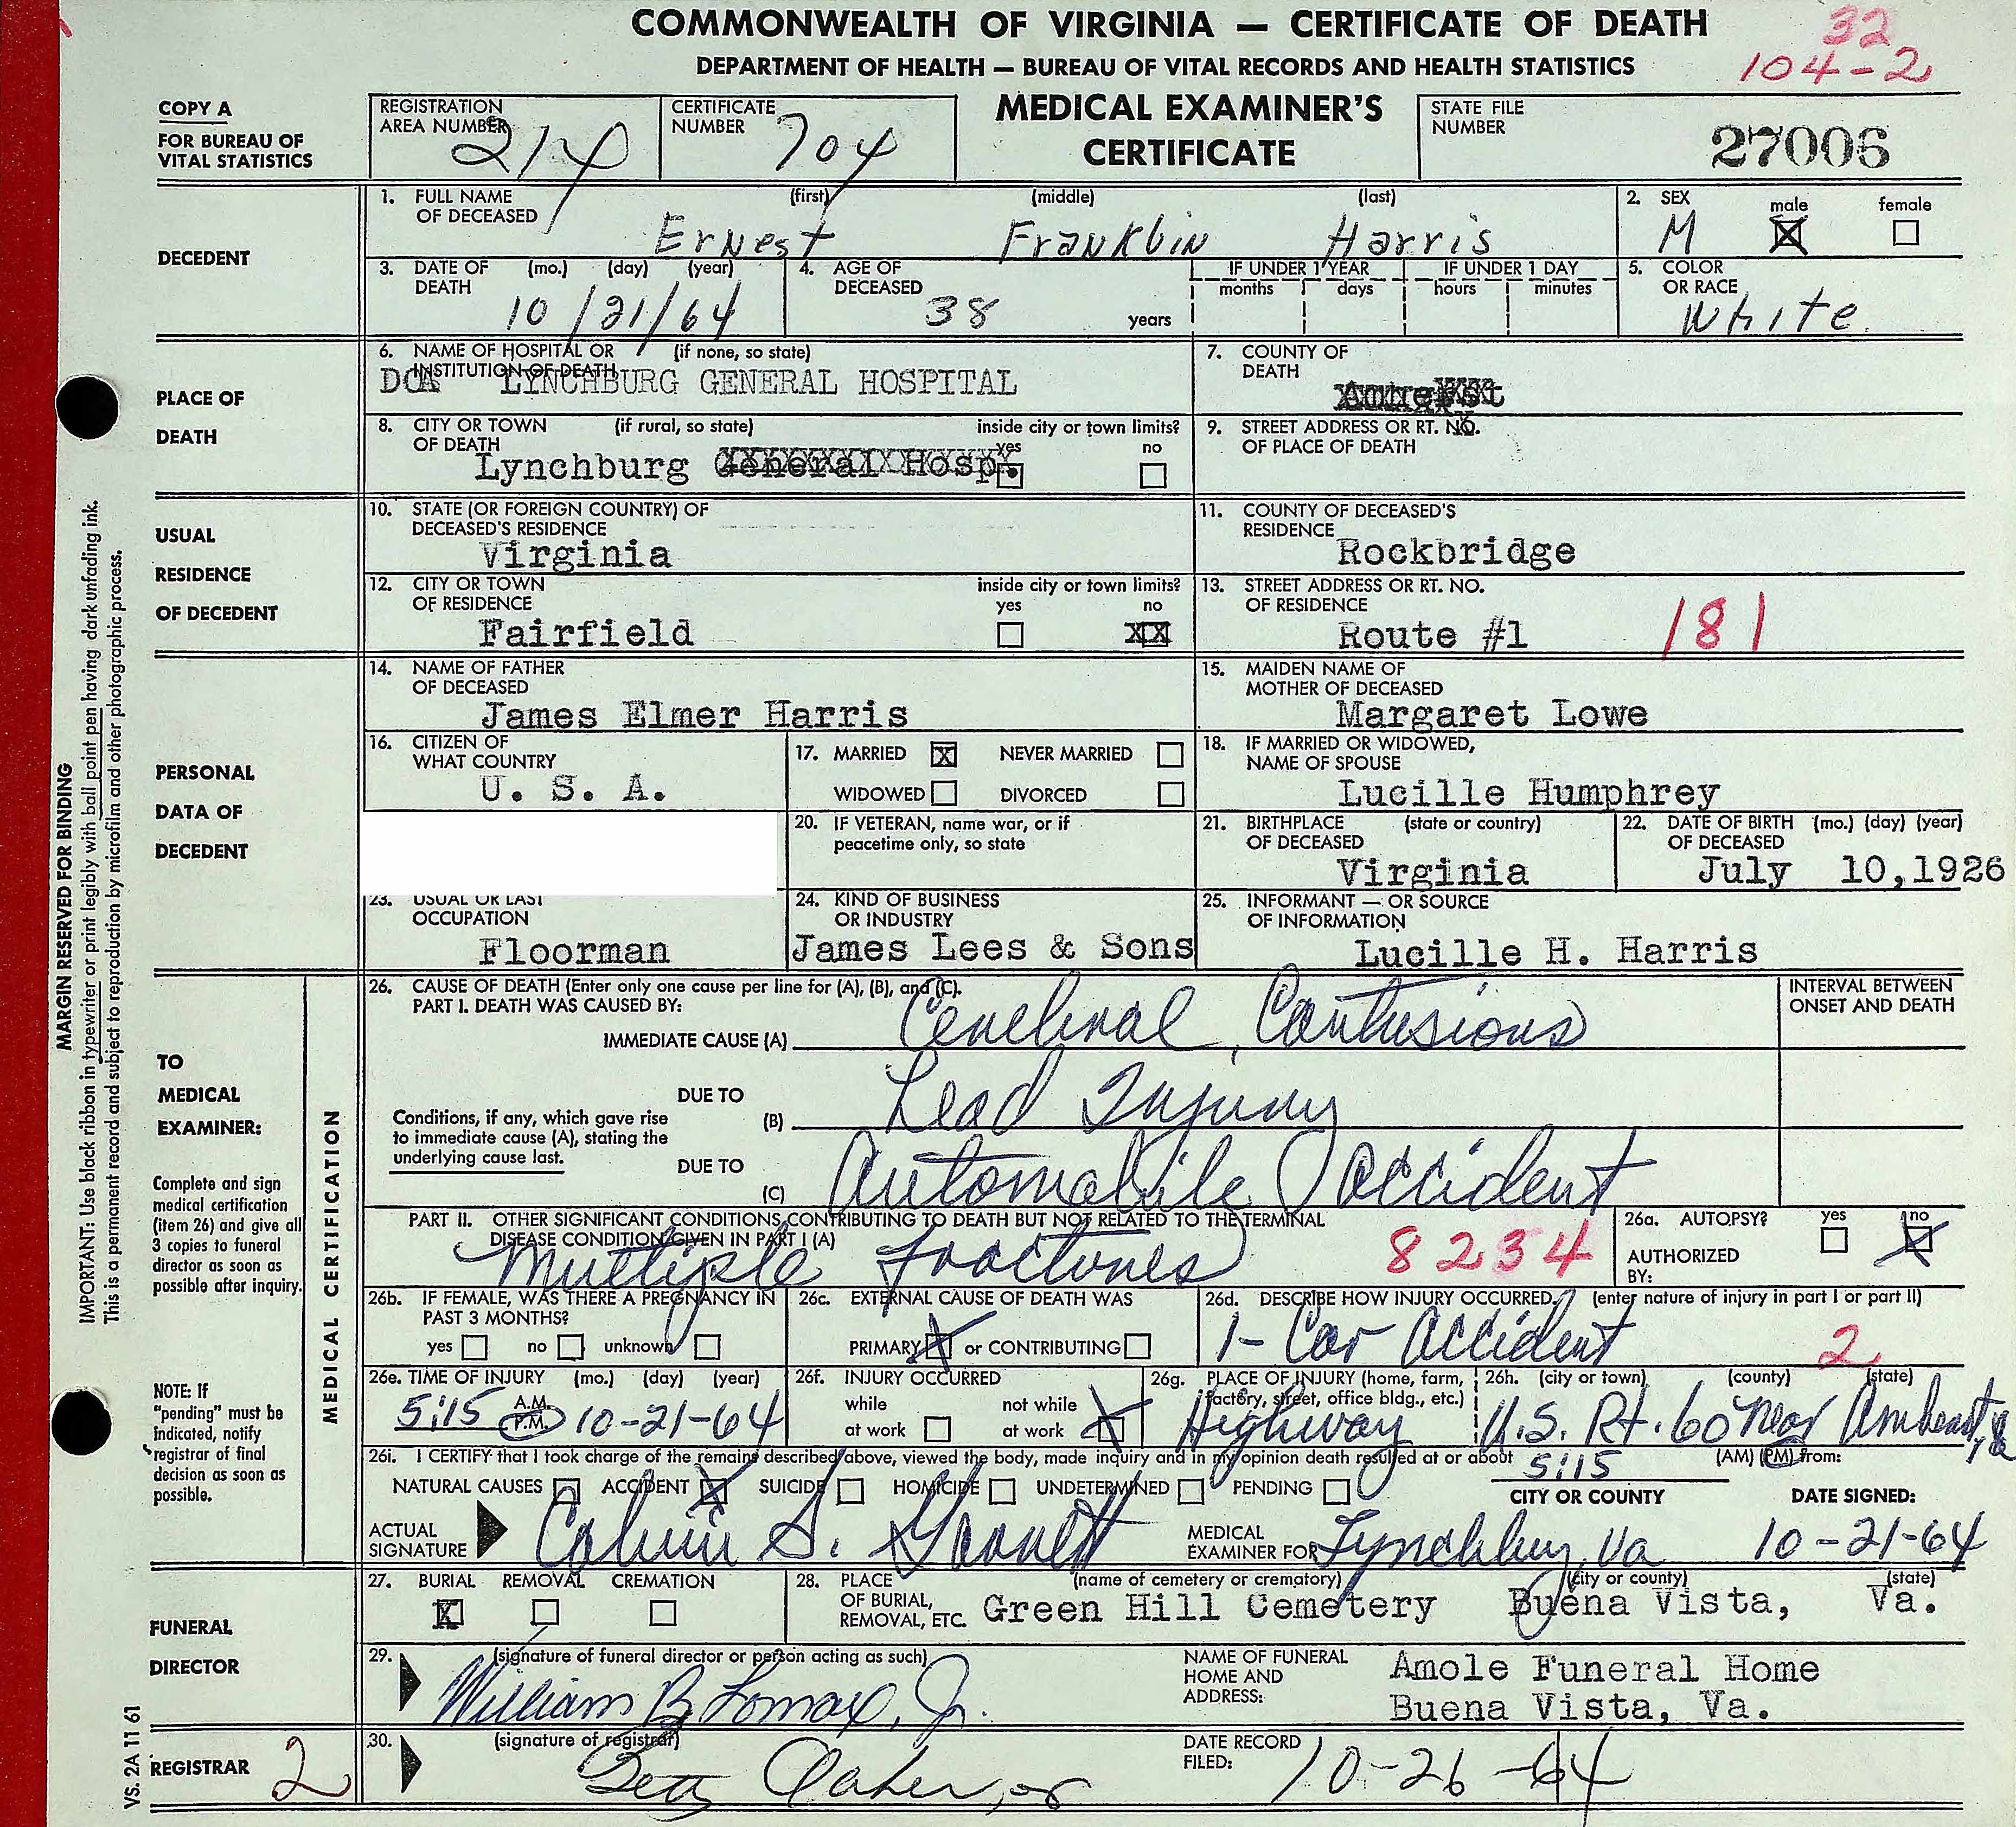 COMMONWEALTH OF VIRGINIA — CERTIFICATE OF DEATH
32
DEPARTMENT OF HEALTH — BUREAU OF VITAL RECORDS AND HEALTH STATISTICS
104-2
COPY A
FOR BUREAU OF VITAL STATISTICS
REGISTRATION AREA NUMBER 214
CERTIFICATE NUMBER 704
MEDICAL EXAMINER'S CERTIFICATE
STATE FILE NUMBER 27006
DECEDENT
1. FULL NAME OF DECEASED (first) (middle) (last)
Ernest Franklin Harris
2. SEX M male X female
3. DATE OF DEATH (mo.) (day) (year)
10/21/64
4. AGE OF DECEASED 38 years
IF UNDER 1 YEAR months days
IF UNDER 1 DAY hours minutes
5. COLOR OR RACE
White
PLACE OF DEATH
6. NAME OF HOSPITAL OR INSTITUTION OF DEATH (if none, so state)
DOA LYNCHBURG GENERAL HOSPITAL
7. COUNTY OF DEATH
Amherst
8. CITY OR TOWN OF DEATH (if rural, so state) inside city or town limits? yes no
Lynchburg General Hosp.
9. STREET ADDRESS OR RT. NO. OF PLACE OF DEATH
USUAL RESIDENCE OF DECEDENT
10. STATE (OR FOREIGN COUNTRY) OF DECEASED'S RESIDENCE
Virginia
11. COUNTY OF DECEASED'S RESIDENCE
Rockbridge
12. CITY OR TOWN OF RESIDENCE inside city or town limits? yes no
Fairfield XX
13. STREET ADDRESS OR RT. NO. OF RESIDENCE
Route #1 181
PERSONAL DATA OF DECEDENT
14. NAME OF FATHER OF DECEASED
James Elmer Harris
15. MAIDEN NAME OF MOTHER OF DECEASED
Margaret Lowe
16. CITIZEN OF WHAT COUNTRY
U. S. A.
17. MARRIED X NEVER MARRIED
WIDOWED DIVORCED
18. IF MARRIED OR WIDOWED, NAME OF SPOUSE
Lucille Humphrey
20. IF VETERAN, name war, or if peacetime only, so state
21. BIRTHPLACE OF DECEASED (state or country)
Virginia
22. DATE OF BIRTH OF DECEASED (mo.) (day) (year)
July 10,1926
23. USUAL OR LAST OCCUPATION
Floorman
24. KIND OF BUSINESS OR INDUSTRY
James Lees & Sons
25. INFORMANT — OR SOURCE OF INFORMATION
Lucille H. Harris
TO MEDICAL EXAMINER:
Complete and sign medical certification (item 26) and give all 3 copies to funeral director as soon as possible after inquiry.
NOTE: If "pending" must be indicated, notify registrar of final decision as soon as possible.
MEDICAL CERTIFICATION
26. CAUSE OF DEATH (Enter only one cause per line for (A), (B), and (C).
PART I. DEATH WAS CAUSED BY:
INTERVAL BETWEEN ONSET AND DEATH
IMMEDIATE CAUSE (A) Cerebral Contusions
Conditions, if any, which gave rise to immediate cause (A), stating the underlying cause last.
DUE TO (B) Head Injury
DUE TO (C) Automobile Accident
PART II. OTHER SIGNIFICANT CONDITIONS CONTRIBUTING TO DEATH BUT NOT RELATED TO THE TERMINAL DISEASE CONDITION GIVEN IN PART I (A)
Multiple fractures 8234
26a. AUTOPSY? yes no X
AUTHORIZED BY:
26b. IF FEMALE, WAS THERE A PREGNANCY IN PAST 3 MONTHS?
yes no unknown
26c. EXTERNAL CAUSE OF DEATH WAS
PRIMARY X or CONTRIBUTING
26d. DESCRIBE HOW INJURY OCCURRED. (enter nature of injury in part I or part II)
1- Car Accident 2
26e. TIME OF INJURY (mo.) (day) (year)
5:15 A.M. P.M. 10-21-64
26f. INJURY OCCURRED
while at work not while at work X
26g. PLACE OF INJURY (home, farm, factory, street, office bldg., etc.)
Highway
26h. (city or town) (county) (state)
U.S. Rt. 60 near Amherst, Va
26i. I CERTIFY that I took charge of the remains described above, viewed the body, made inquiry and in my opinion death resulted at or about 5:15 (AM) (PM) from:
NATURAL CAUSES ACCIDENT X SUICIDE HOMICIDE UNDETERMINED PENDING
CITY OR COUNTY DATE SIGNED:
ACTUAL SIGNATURE Calvin S.
MEDICAL EXAMINER FOR Lynchburg, Va 10-21-64
FUNERAL DIRECTOR
27. BURIAL X REMOVAL CREMATION
28. PLACE OF BURIAL, REMOVAL, ETC. (name of cemetery or crematory) (city or county) (state)
Green Hill Cemetery Buena Vista, Va.
29. (signature of funeral director or person acting as such)
William B Lomax, Jr.
NAME OF FUNERAL HOME AND ADDRESS:
Amole Funeral Home
Buena Vista, Va.
REGISTRAR 2
30. (signature of registrar)
DATE RECORD FILED: 10-26-64
MARGIN RESERVED FOR BINDING
IMPORTANT: Use black ribbon in typewriter or print legibly with ball point pen having dark unfading ink.
This is a permanent record and subject to reproduction by microfilm and other photographic process.
VS. 2A 11 61